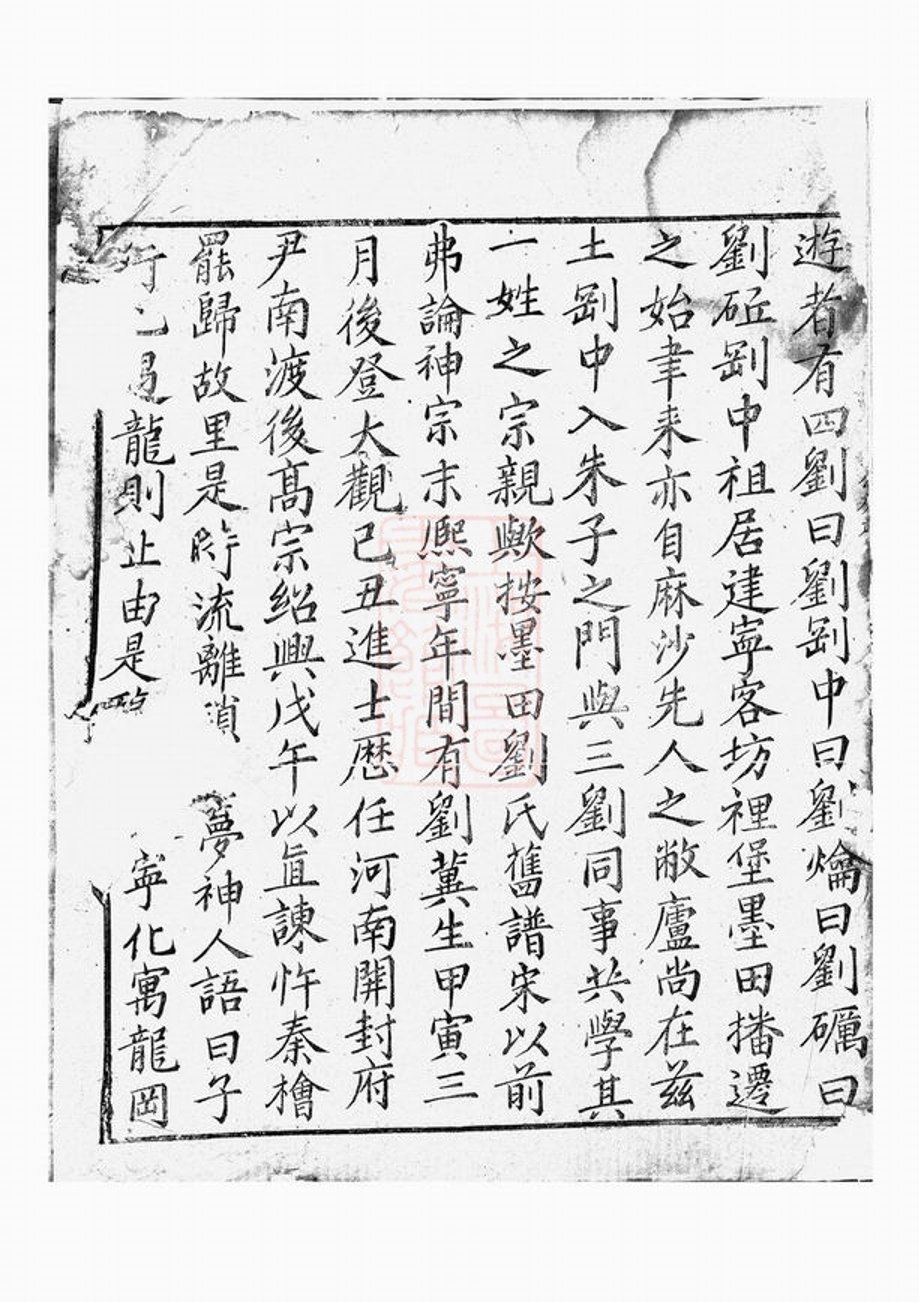 遊者有四劉曰劉剛中曰劉爚曰劉礪曰
劉砥剛中祖居建寧客坊裡堡墨田播遷
之始聿来亦自麻沙先人之敝廬尚在兹
土剛中入朱子之門與三劉同事共學其
一姓之宗親歟按墨田劉氏舊譜宋以前
弗論神宗末熈寧年間有劉蓂生甲寅三
月後登大觀己丑進士歴任河南開封府
尹南渡後髙宗紹興戊午以直諫忤秦檜
罷歸故里是時流離瑣夢神人語曰子
行遇龍則止由是寧化寓龍岡